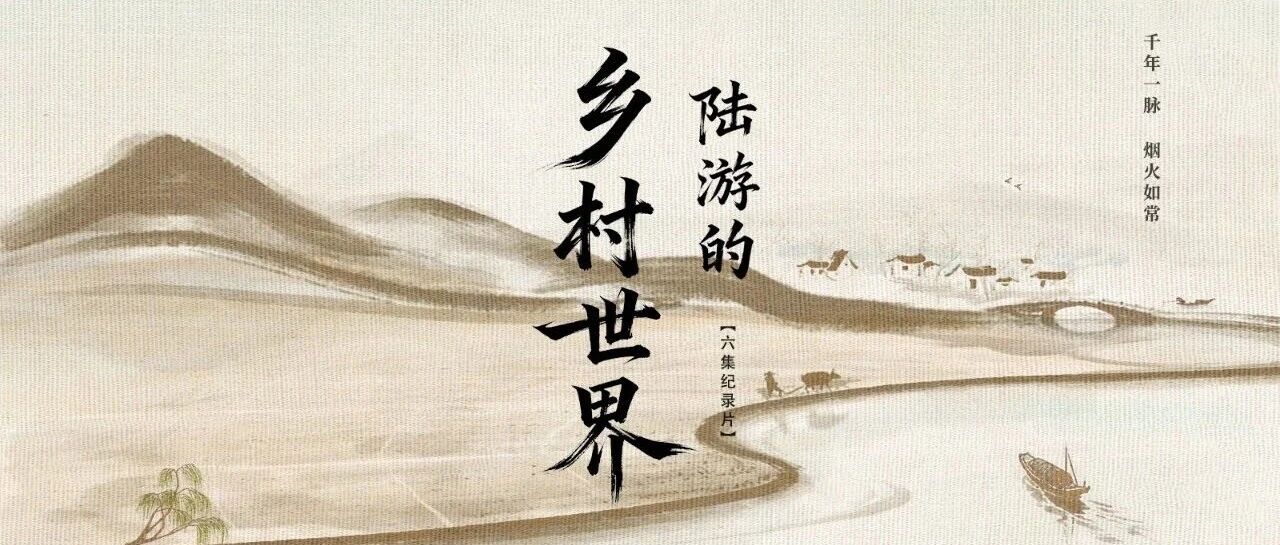 千年一脉 烟火如常
陆游的
乡村世界
【六集纪录片】